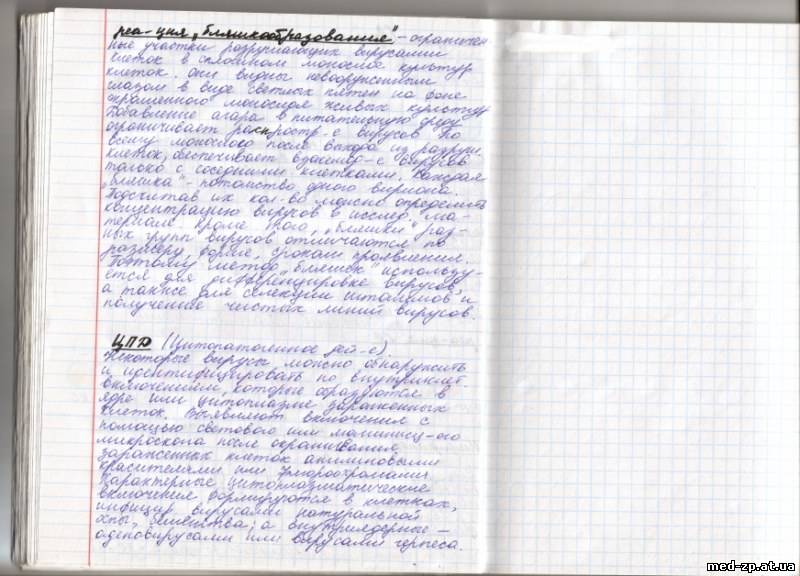 реа-ция „бляшкообразования" - ограничен-
ные участки разрушающих вирусами
клеток в сплошном монослое культур
клеток. Они видны невооруженным
глазом в виде светлых пятен на фоне
окрашенного монослоя живых культур.
Добавление агара в питательную среду
ограничивает распростр-е вирусов по
всему монослою после выхода из разруш.
клеток, обеспечивает взаимод-е вирусов
только с соседними клетками. Каждая
„бляшка" - потомство одного вириона.
Подсчитав их кол-во можно определить
концентрацию вирусов в исслед. ма-
териале. Кроме того, „бляшки" раз-
ных групп вирусов отличаются по
размеру, форме, срокам проявления.
Поэтому метод „бляшек" использу-
ется для дифференцировке вирусов,
а также для селекции штаммов и
получение чистых линий вирусов.
ЦПД (Цитопатогенное дей-е).
Некоторые вирусы можно обнаружить
и идентифицировать по внутриклет.
включением, которые образуются в
ядре или цитоплазме зараженных
клеток. Выявляют включения с
помощью светового или люминисц-ого
микроскопа после окрашивания
зараженных клеток анилиновыми
красителями или
Характерные цитоплазматические
включения формируются в клетках,
инфицир вирусами натуральной
оспы, бешенства; а внутриядерные -
аденовирусами или вирусами герпеса.
med-zp.at.ua